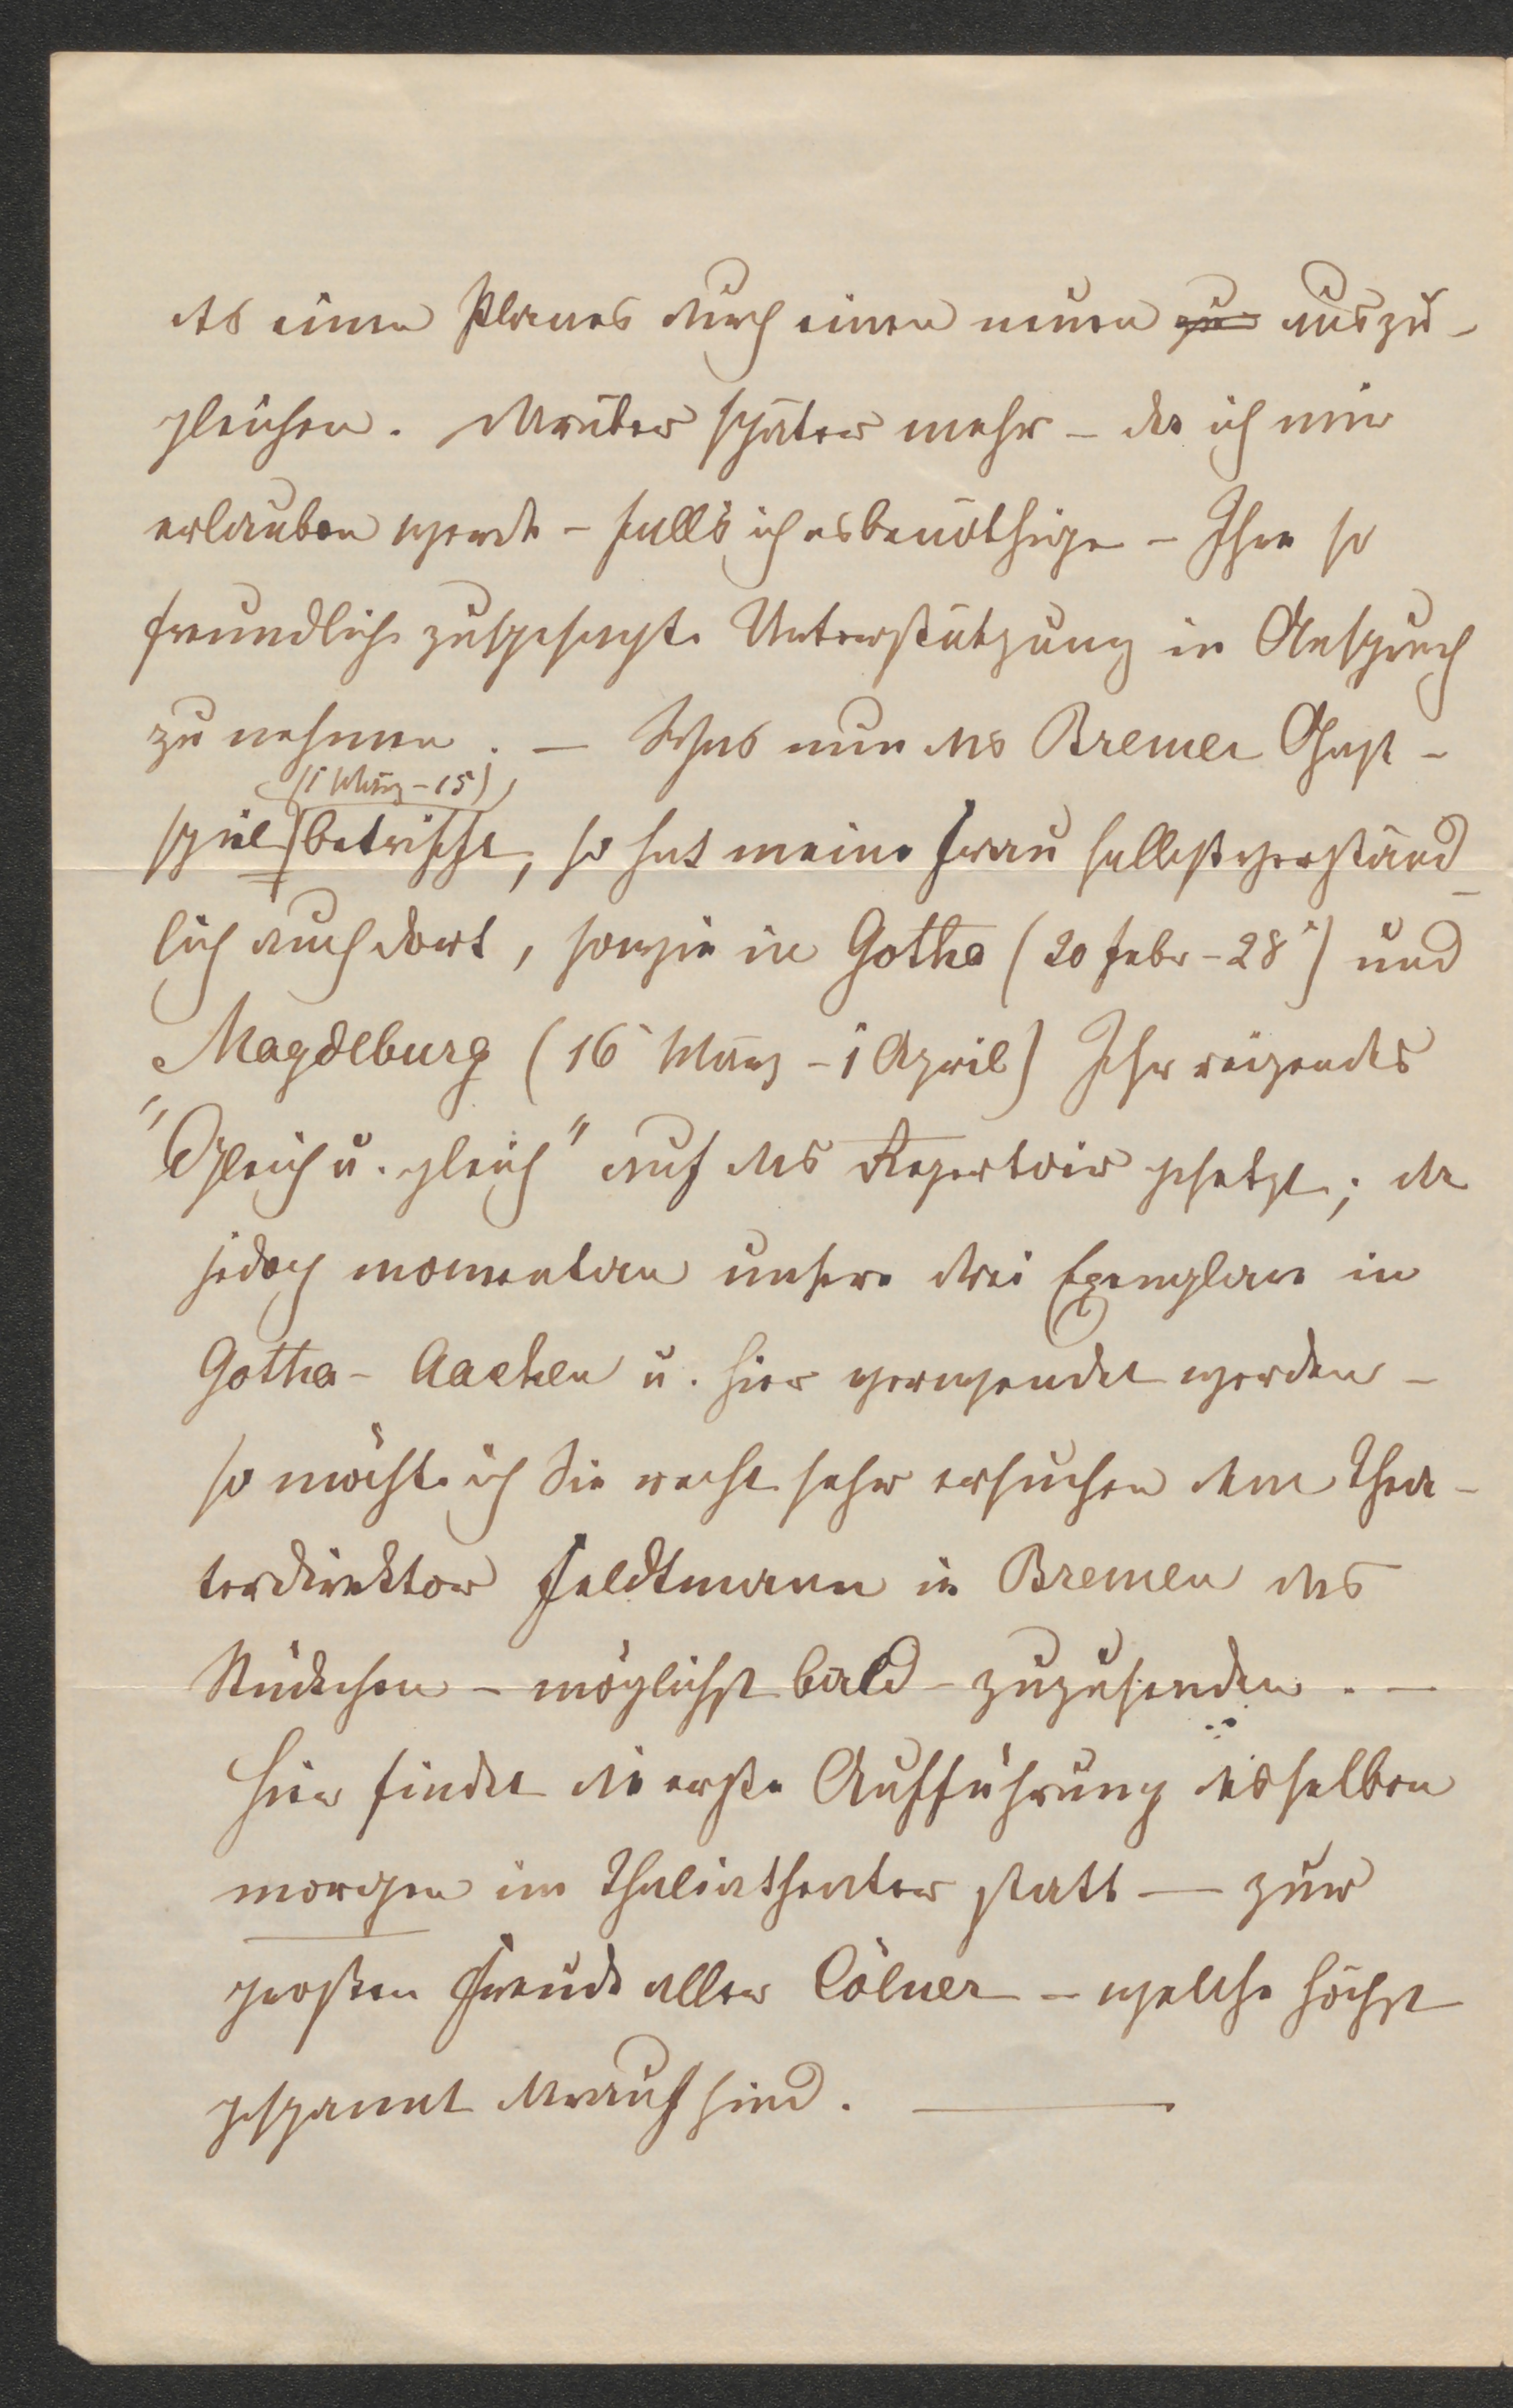 des einen Planes durch einen neuen zu auszu-
gleichen. Darüber später mehr – da ich mir
erlauben werde – falls ich es benöthige – Ihre so
freundlich zugesagte Unterstützung in Anspruch
zu nehmen. – Was nun das Bremer Gast-
(1 März – 15)
spiel betrifft, so hat meine Frau selbstverständ-
lich auch dort, sowie in Gotha (20 Febr – 28) und
Magdeburg (16 März – 1 April) Ihr reizendes
"Gleich u. gleich" auf das Repertoir gesetzt; da
jedoch momentan unsere drei Exemplare in
Gotha – Aachen u. hier verwendet werden –
so möchte ich Sie recht sehr ersuchen dem Thea-
terdirektor Feldtmann in Bremen das
Stückchen – möglichst bald – zuzusenden. –
Hier findet die erste Aufführung desselben
morgen im Thaliatheater statt — zur
großen Freude aller Cölner – welche höchst
gespannt darauf sind. —